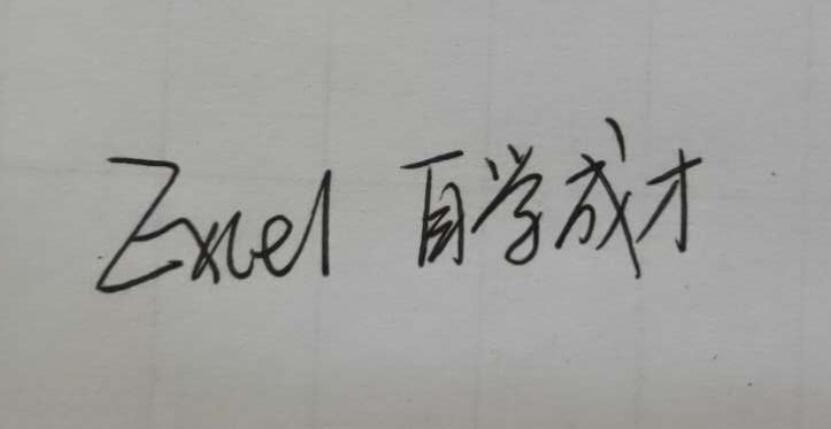 Excel 自学成才